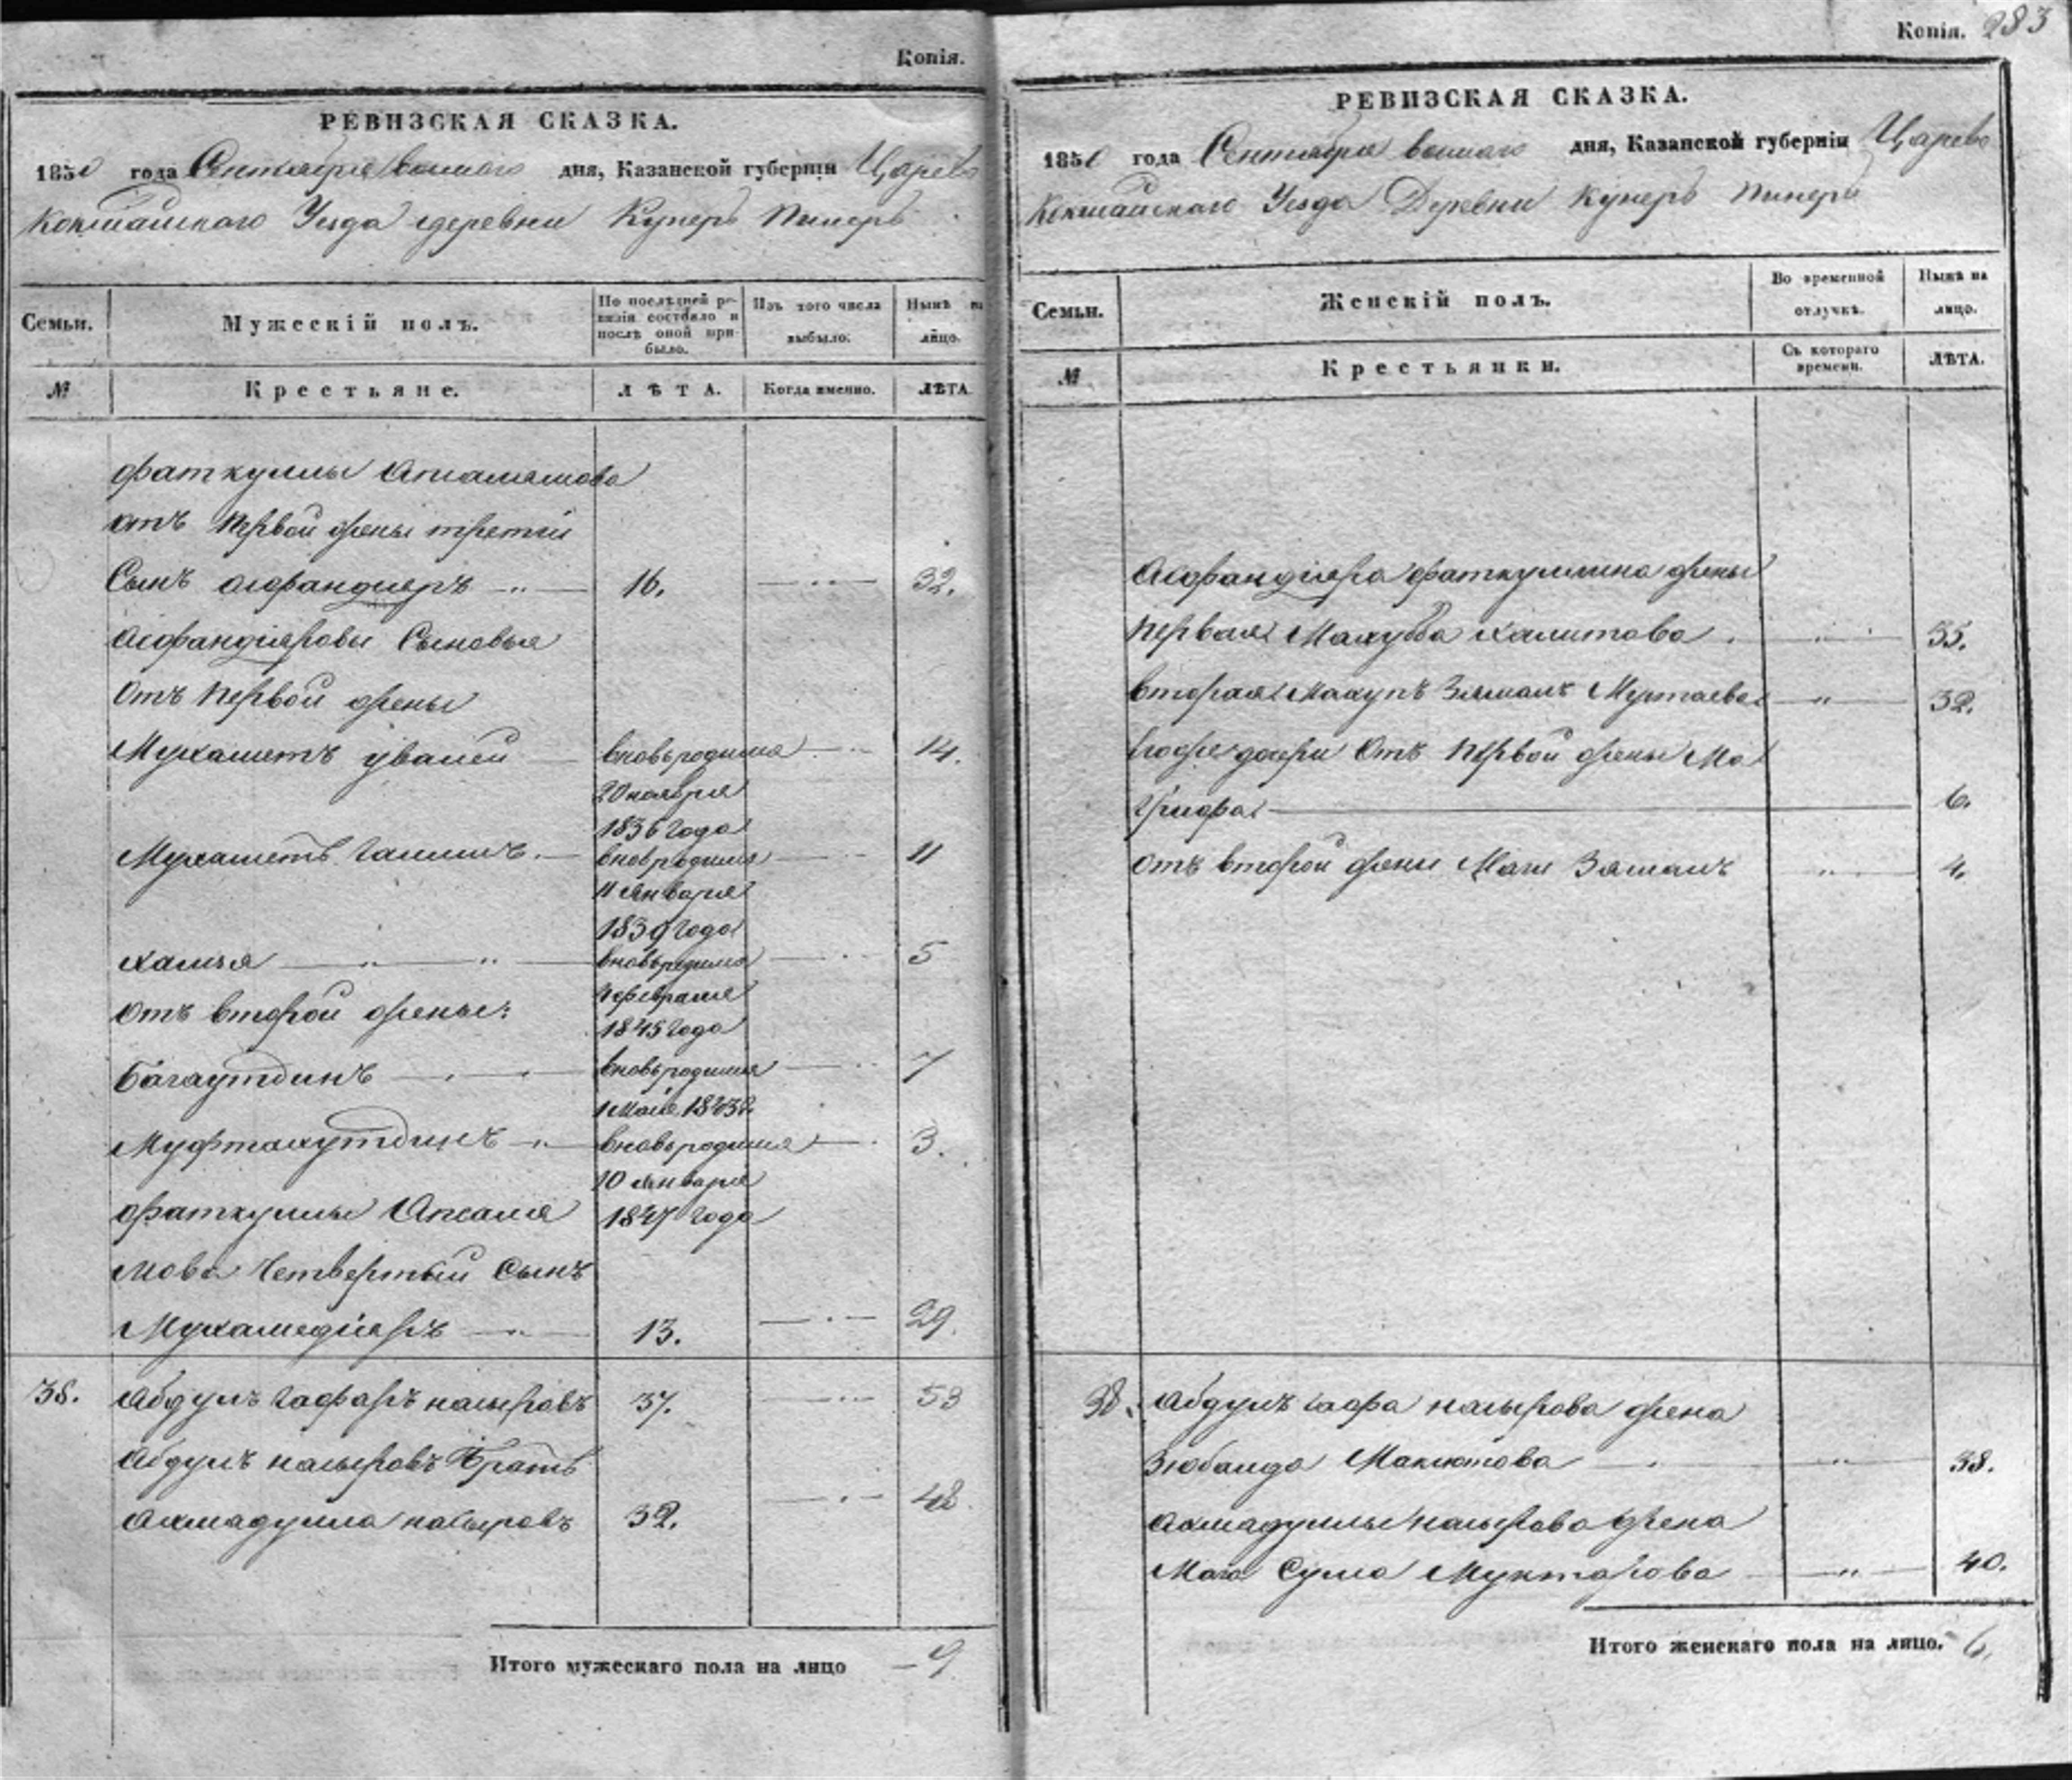 Копія.
РЕВИЗСКАЯ СКАЗКА.
1850 года Сентября дня, Казанской губерніи Царево
Кокшайскаго Уезда деревни Куперъ
Семьи.
Мужескій полъ.
По послѣдней ревизіи состояло и послѣ оной прибыло.
Изъ того числа выбыло.
Нынѣ на лицо.
№
Крестьяне.
ЛѢТА.
Когда именно.
ЛѢТА.
Фаткуллы
отъ первой жены третій
Сынъ Асфандиеръ 16. 32.
Асфандіяровы Сыновья
Отъ первой жены
Мухаметъ Увалей вновьродился 14.
20 ноября
1836 года
Мухаметъ Галимъ вновьродился 11
11 Января
1839 года
Хамзя вновьродился 5
4 февраля
1845 года
отъ второй жены:
Багаутдинъ вновьродился 7
1 Мая 1843 г.
Муфтахутдинъ вновьродился 3.
10 Января
1847 года
Фаткуллы Апкаля
мова Четвертый Сынъ
Мухамедіяръ 13. 29.
38. Абдулъ Гафаръ Насыровъ 37. 53
Абдулъ Насыровъ Братъ
Ахмадулла Насыровъ 32. 48.
Итого мужескаго пола на лицо 9
Копія. 283
РЕВИЗСКАЯ СКАЗКА.
1850 года Сентября дня, Казанской губерніи Царево
Кокшайскаго Уезда Деревни Куперъ
Семьи.
Женскій полъ.
Во временной отлучкѣ.
Нынѣ на лицо.
№
Крестьянки.
Съ котораго времени.
ЛѢТА.
Асфандіяра Фаткуллина жены
первая Махуба Халитова 35.
вторая Зямалъ Муртаева 32.
дочери Отъ первой жены Ма
6.
отъ второй жены Маги Зямалъ 4.
38. Абдулъ Гафа Насырова жена
Зюбаида Макнютова 38.
Ахмадуллы Насырова жена
Мага Сулма Муктарова 40.
Итого женскаго пола на лицо. 6.